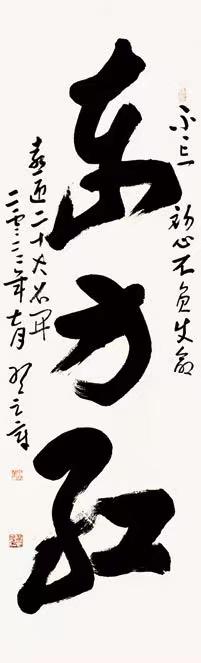 不忘初心不负使命
东方红
喜迎二十大召开
二零二二年七月